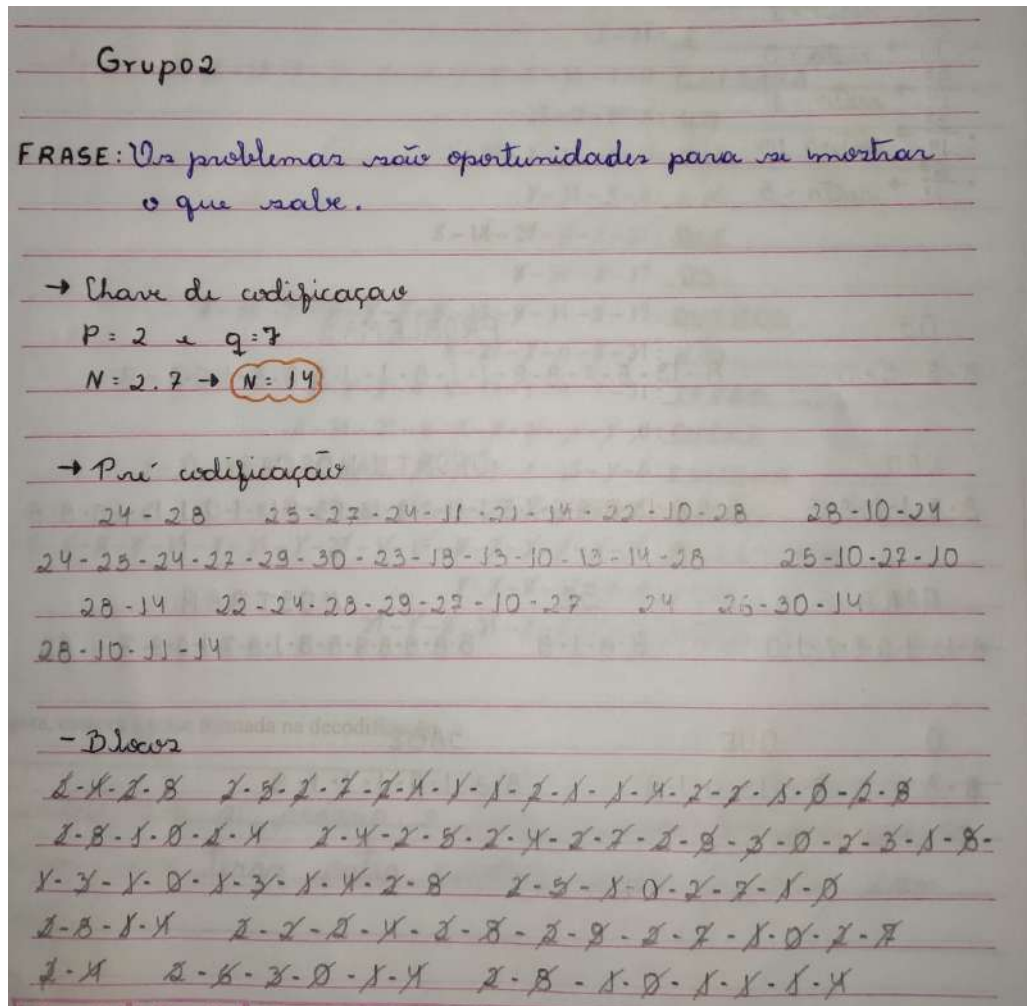 Grupo 2
FRASE: Os problemas são oportunidades para se mostrar
o que sabe.
→ Chave de codificaçao
P = 2 e q = 7
N = 2 . 7 → N = 14
→ Pré codificação
24 - 28 25 - 27 - 24 - 11 - 21 - 14 - 22 - 10 - 28 28 - 10 - 24
24 - 25 - 24 - 27 - 29 - 30 - 23 - 18 - 13 - 10 - 13 - 14 - 28 25 - 10 - 27 - 10
28 - 14 22 - 24 - 28 - 29 - 27 - 10 - 27 24 26 - 30 - 14
28 - 10 - 11 - 14
- Blocos
2-4-2-8 2-5-2-7-2-4-1-1-2-1-1-4-2-2-1-0-2-8
2-8-1-0-2-4 2-4-2-5-2-4-2-7-2-9-3-0-2-3-1-8-
1-3-1-0-1-3-1-4-2-8 2-5-1-0-2-7-1-0
2-8-1-4 2-2-2-4-2-8-2-9-2-7-1-0-2-7
2-4 2-6-3-0-1-4 2-8-1-0-1-1-1-4